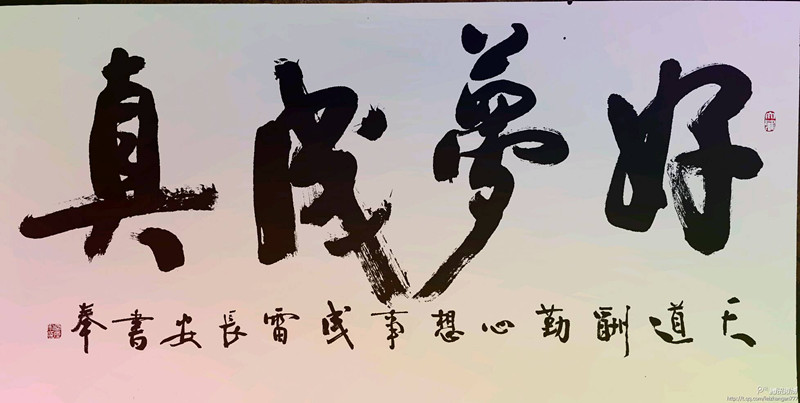 好夢成真
天道酬勤心想事成雷長安書奉
http://t.qq.com/leizhangan777